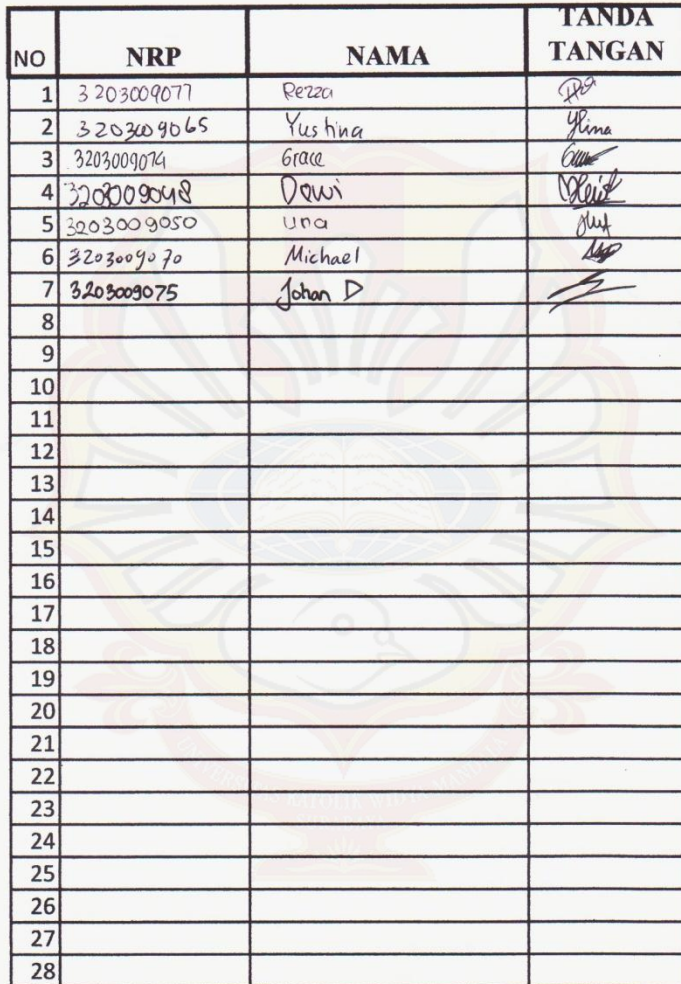 NO NRP NAMA TANDA TANGAN
1 3203009077 Rezza
2 3203009065 Yustina
3 3203009074 Grace
4 3203009048 Dewi
5 3203009050 Una
6 3203009070 Michael
7 3203009075 Johan D
8
9
10
11
12
13
14
15
16
17
18
19
20
21
22
23
24
25
26
27
28